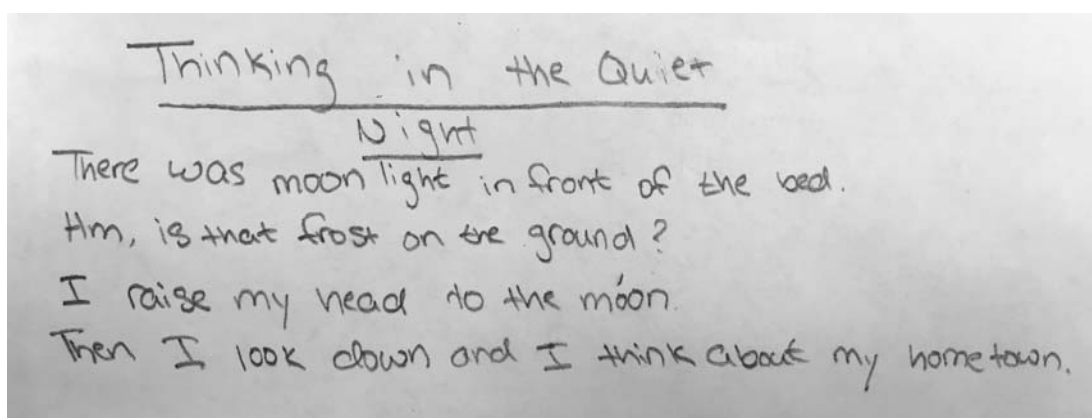 Thinking in the Quiet
Night
There was moon light in front of the bed.
Hm, is that frost on the ground?
I raise my head to the moon.
Then I look down and I think about my hometown.